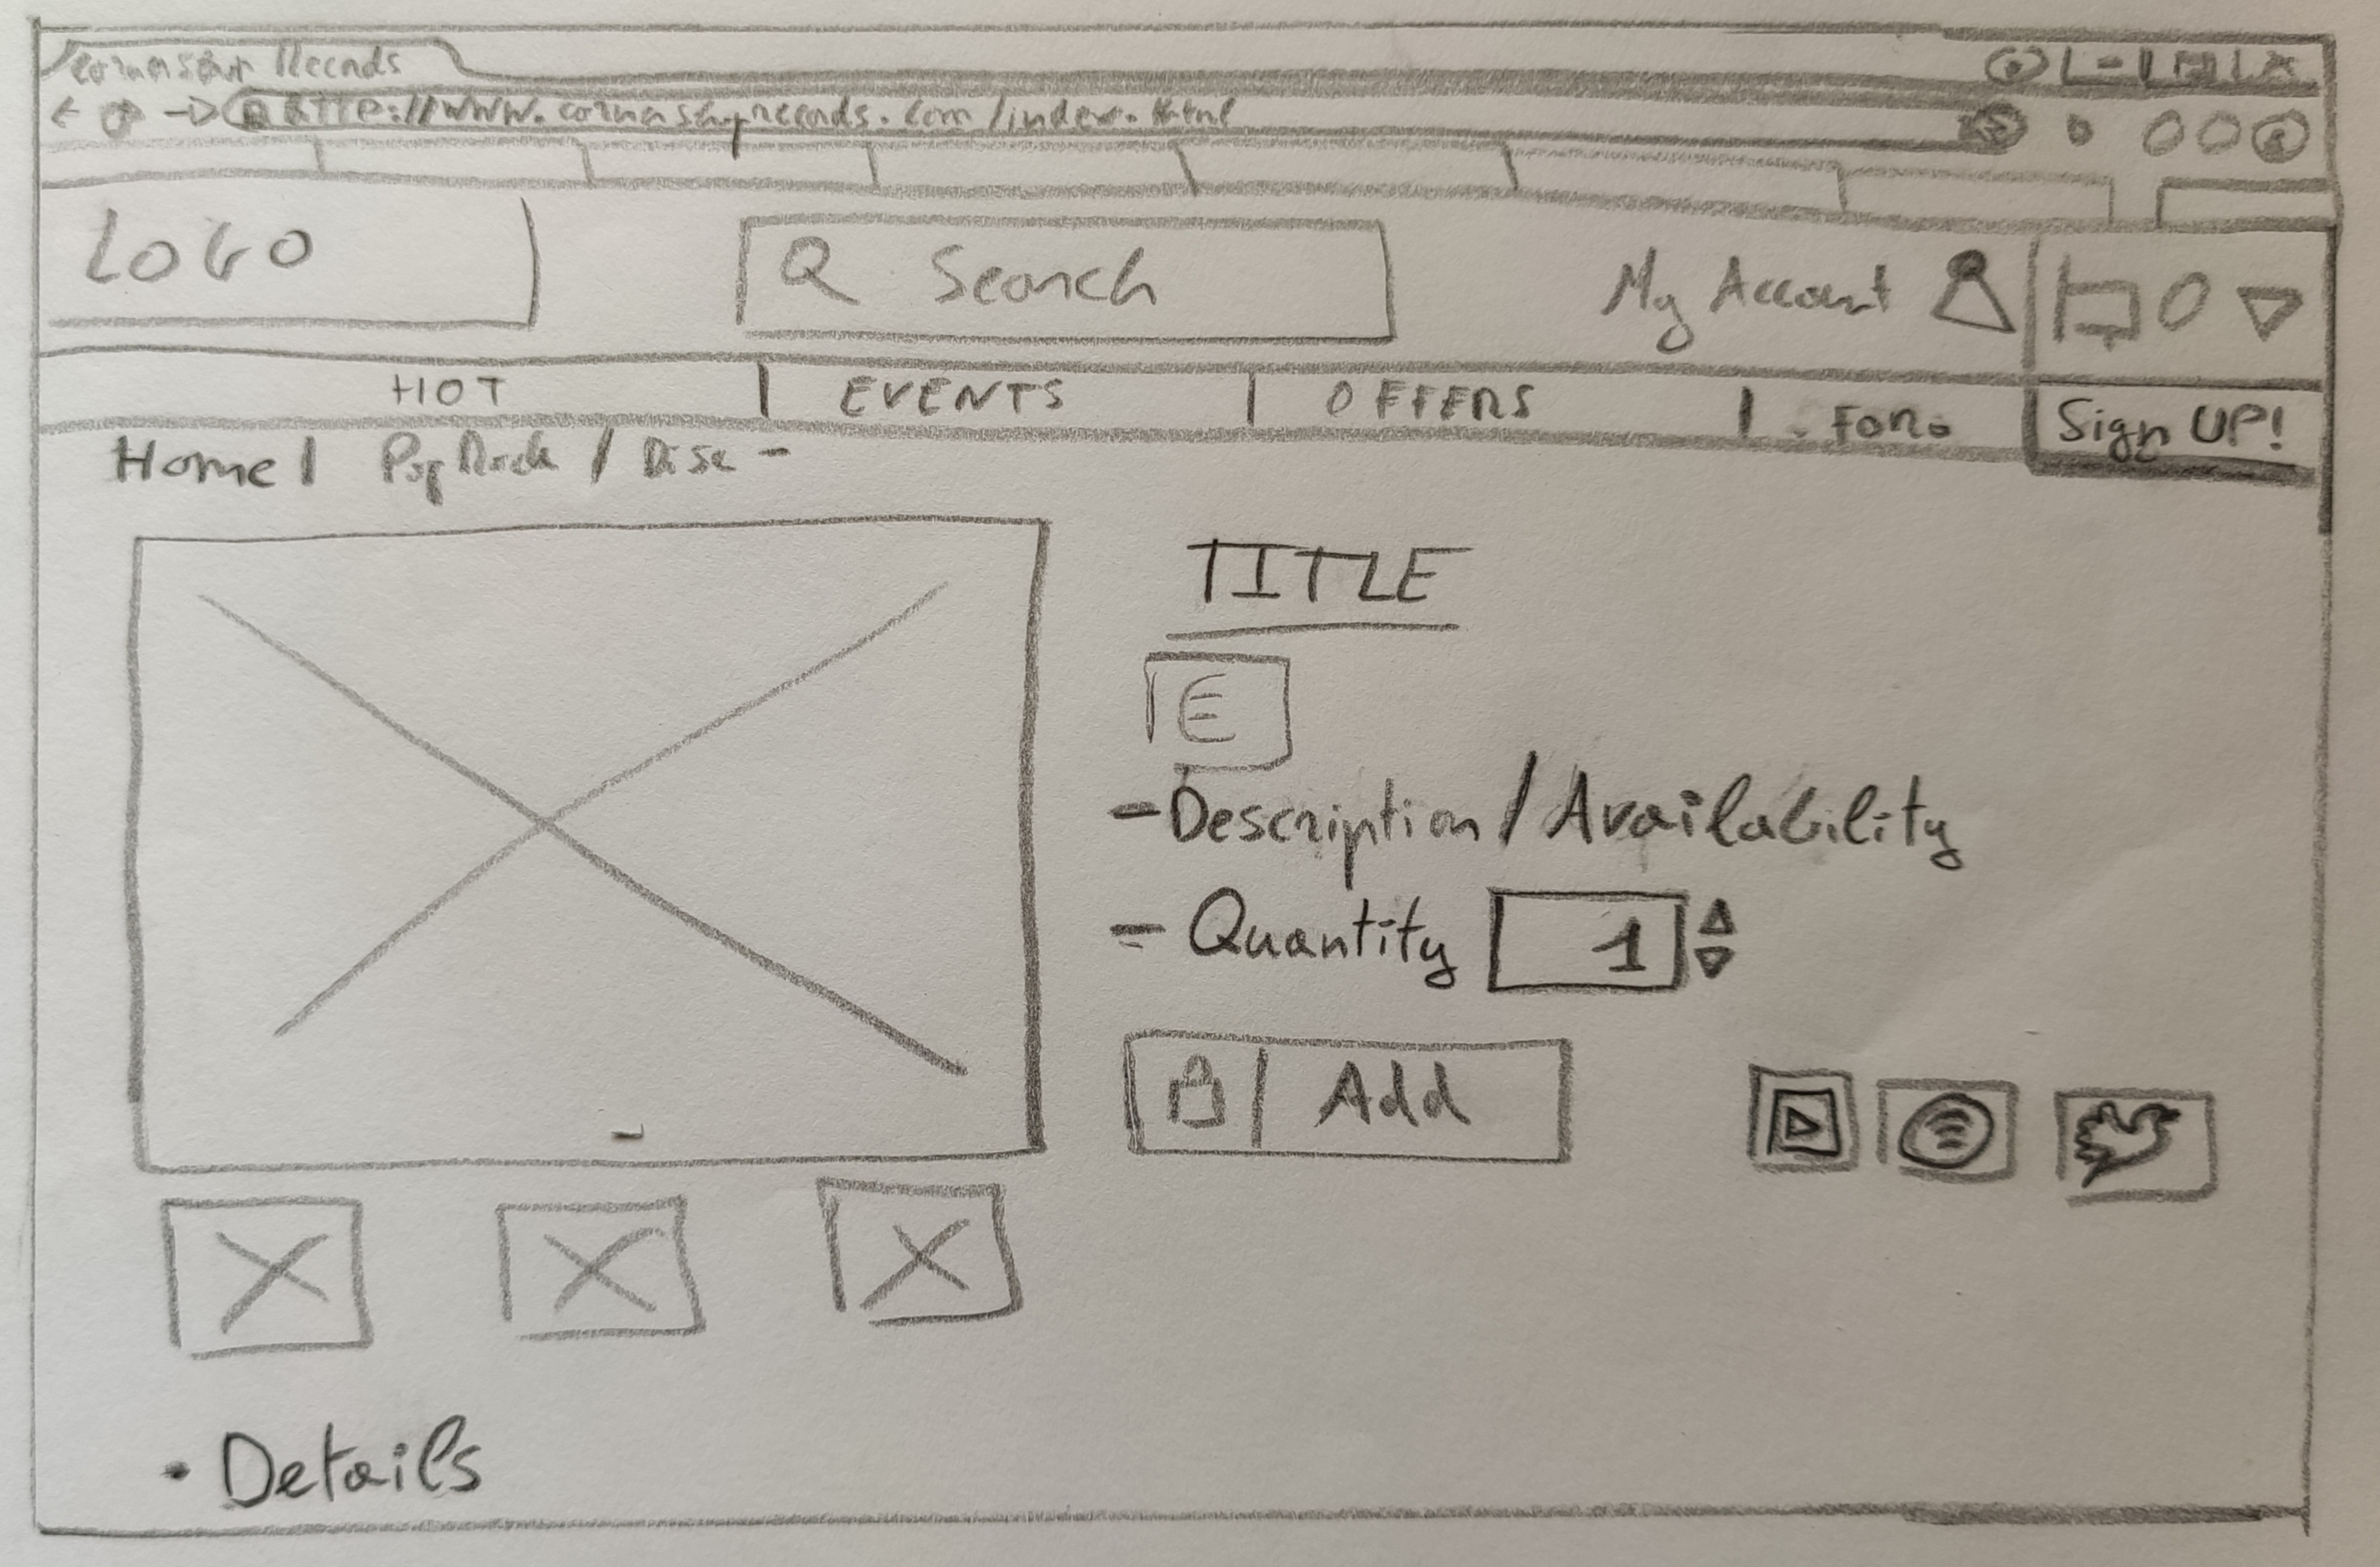 Cornershop Records
http://www.cornershoprecords.com/index.html
LOGO
Search
My Account
0
HOT | EVENTS | OFFERS | Foro
Sign UP!
Home / Pop Rock / Disc -
TITLE
€
- Description / Availability
- Quantity 1
Add
• Details